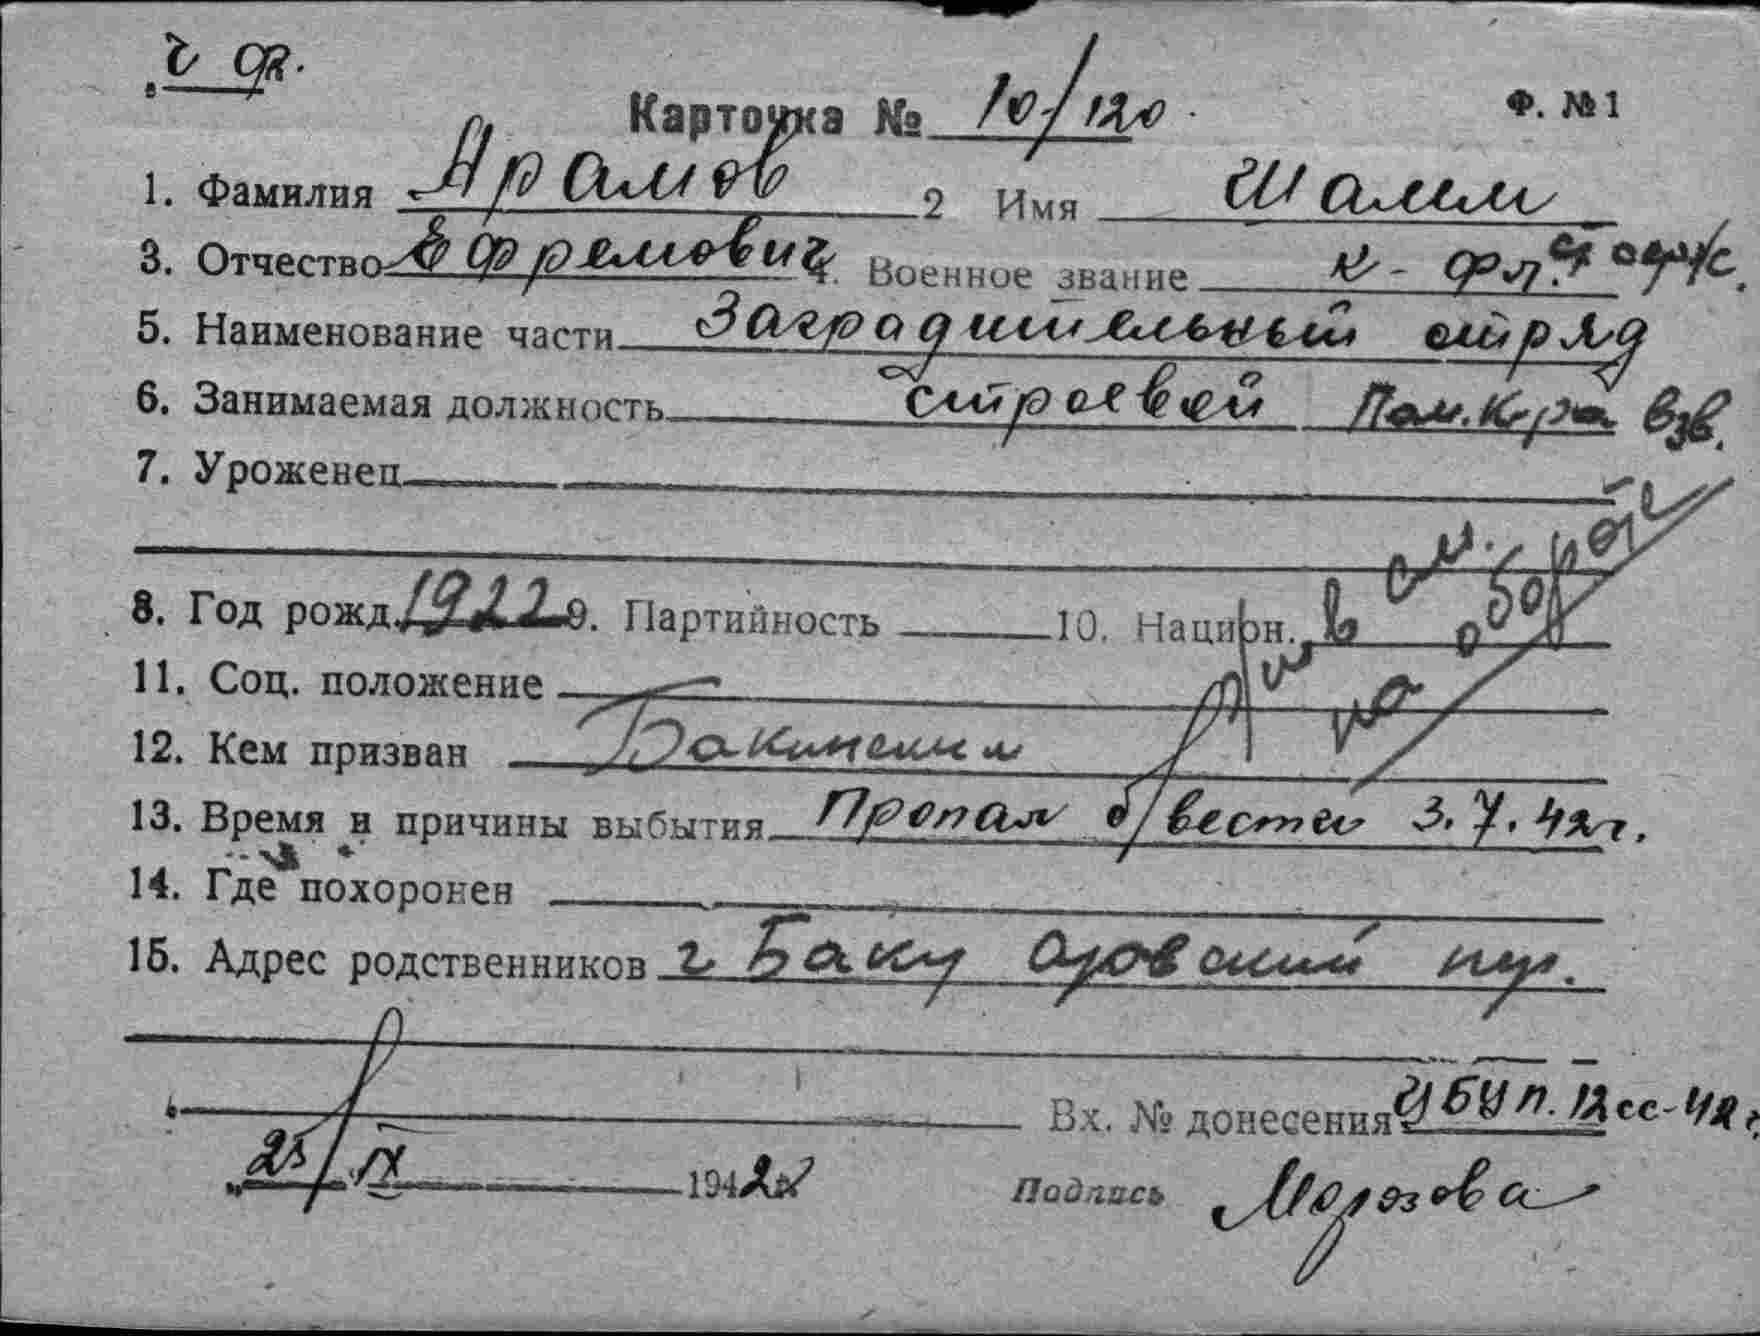 ч ф.
Карточка № 10/120. Ф. №1
1. Фамилия Арамов 2 Имя Шалим
3. Отчество Ефремович 4. Военное звание к-фл. ст серж.
5. Наименование части Заградительный отряд
6. Занимаемая должность строевой Пом. к-ра взв.
7. Уроженец
8. Год рожд. 1922 9. Партийность 10. Национ.
см. на обороте
11. Соц. положение
12. Кем призван Бакинским
13. Время и причины выбытия Пропал б/вести 3.7.42г.
14. Где похоронен
15. Адрес родственников г Баку Азовский пер.
Вх. № донесения УБЧП. 12сс-42г.
25/IX 1942г Подпись Морозова